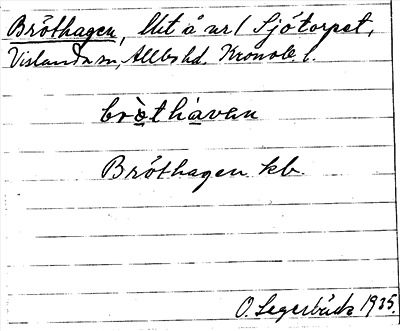 Bröthagen, llit å nr 1 Sjötorpet,
Vislanda sn, Allbo hd. Kronob. l.
brò̱thàvan
Bröthagen kb
O. Segerbäck 1935.